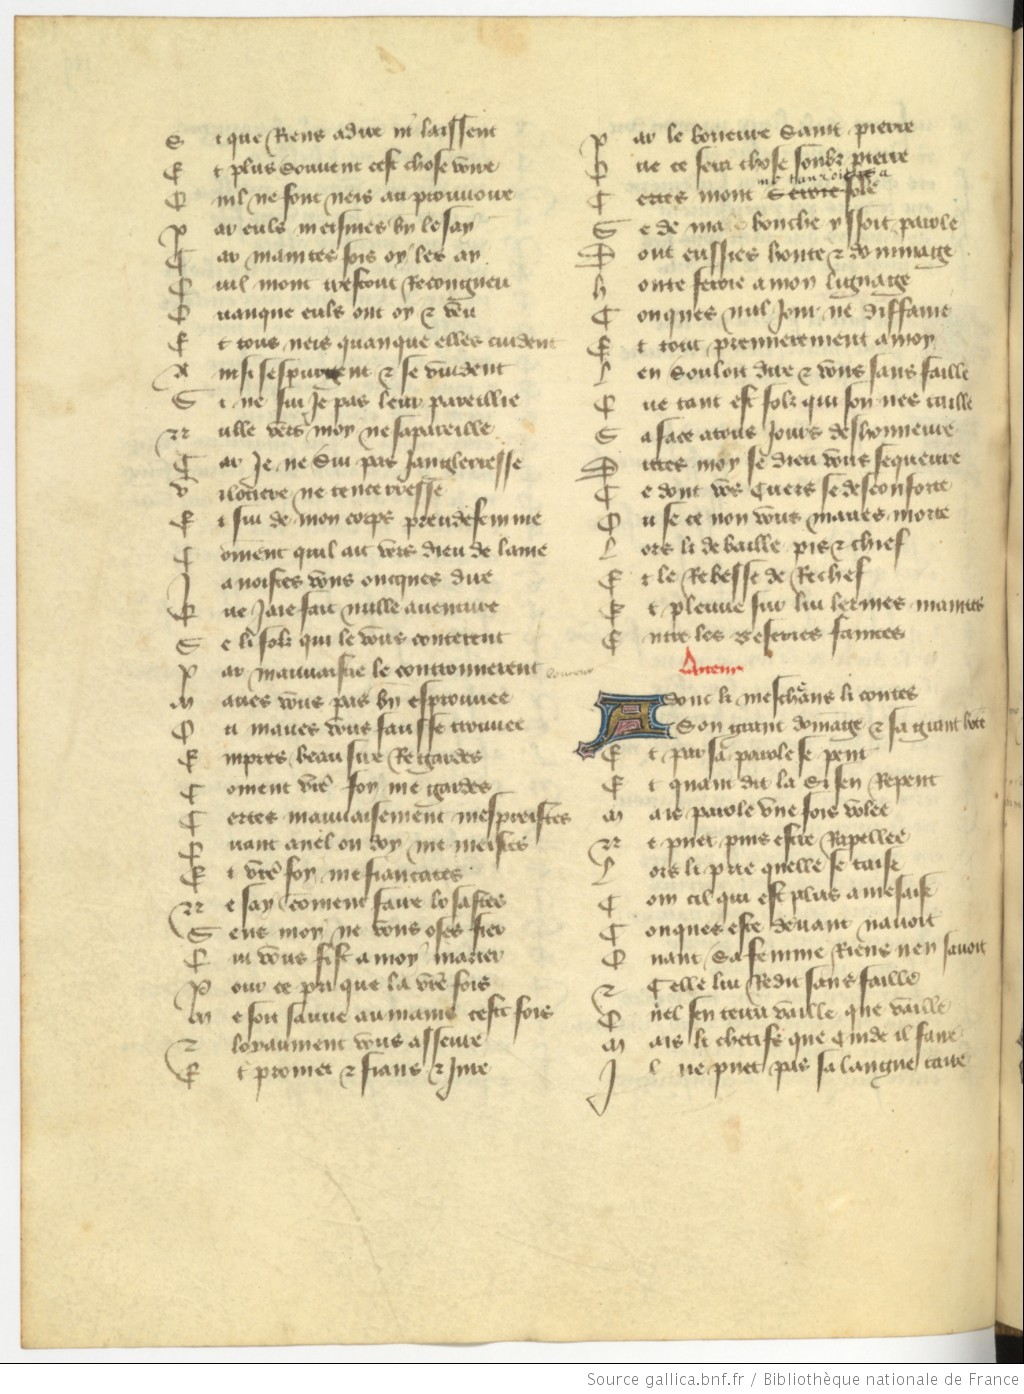 E t que Riens a dire ni laissent
E t plus souvent cest chose voire
Q uil ne font neis au prouvoire
P ar euls meismes by le say
C ar maintes fois oy les ay
C uil mont trestout Recongneu
Q uanque euls ont oy & veu
E t tous neis quanque elles cuident
A insi sespurgent & se vuident
S i ne sui Je pas leur pareillie
N ulle vers moy ne sapareille
C ar Je ne Sui pas Janglerresse
V ilotiere ne tencerresse
E t sui de mon corps preudefemme
C oment quil ait vers dieu de lame
J a noistes vous oncques dire
Q ue Jaie fait nulle aventure
S e li folz qui le vous conterent
P ar mauvaistie le controuverent
M aves vous pas by esprouvee
O u maves vous fausse trouvee
E mpres beau sire Regardes
C oment vre foy me gardes
C ertes mauvaisement mespreistes
Q uant anel ou doy me meistes
E t vre foy me fiancates
N e say coment faire losastes
S ens moy ne vous oses fier
Q ui vous fist a moy marier
P our ce pri que la vre fois
M e soit sauve au mains ceste fois
& loyaument vous asseure
E t promet & fians & Jure
P ar le boneure Saint pierre
Q ue ce sera chose soubz pierre
C ertes mont me tanroies a fole
S e de ma bouche yssoit parole
D ont eussies honte & dommage
H onte feroie a mon lignage
C onques nul Jour ne diffame
E t tout premierement a moy
L en Souloit dire & vous sans faille
Q ue tant est folz qui son nes taille
S a face a tous Jours deshonneure
D ites moy se dieu vous sequeure
C e dont vos Cuers se desconforte
O u se ce non vous maves morte
L ors li debaille pis & chief
E t le Rebesse de Rechef
E t pleure sur lui lermes maintes
E ntre les beseries faintes
Acteur
A donc li meschans li contes
Son grant domage & sa grant hote
E t par sa parole se pent
E t quant dit la Si sen Repent
M ais parole une fois volee
N e puet puis estre Rapellee
L ors li prie quelle se taise
C om cil qui est plus a mesaise
C onques estre devant navoit
Q uant Sa femme Riens nen savoit
& Celle lui Redit sans faille
Q uel sen teura vaille que vaille
M ais li chetifs que Cuide il faire
J l ne puet pas sa langue taire